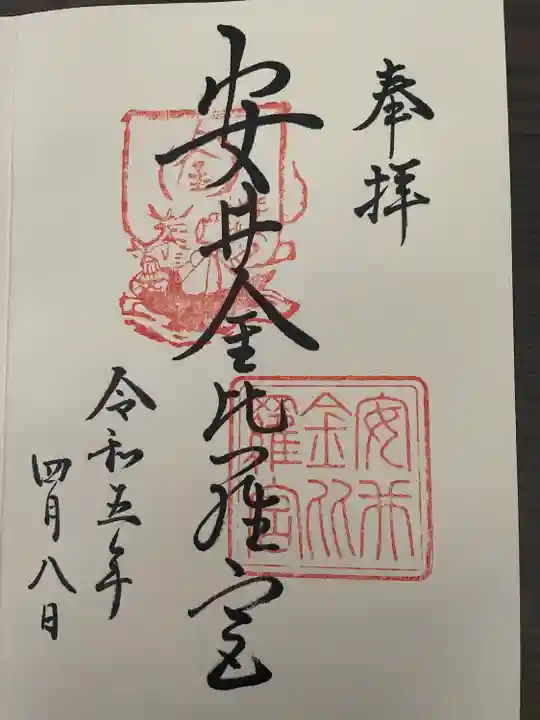 奉拝
安井金比羅宮
安井金比羅宮
令和五年
四月八日